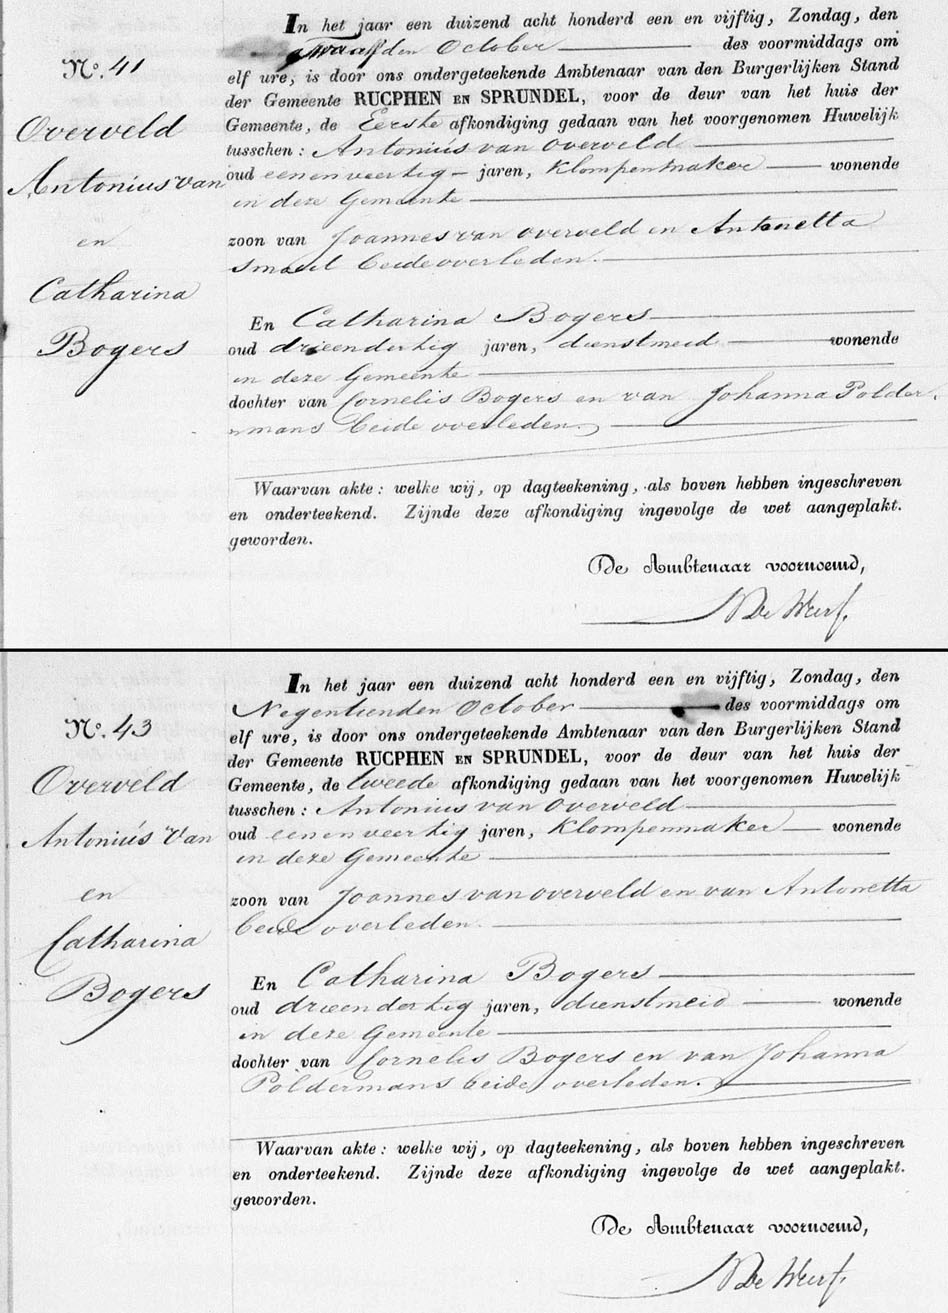 In het jaar een duizend acht honderd een en vijftig, Zondag, den
twaalfden October des voormiddags om
No. 41
elf ure, is door ons ondergeteekende Ambtenaar van den Burgerlijken Stand
der Gemeente RUCPHEN EN SPRUNDEL, voor de deur van het huis der
Gemeente, de Eerste afkondiging gedaan van het voorgenomen Huwelijk
Overveld
tusschen: Antonius van Overveld
Antonius van
oud eenenveertig jaren, Klompenmaker wonende
in deze Gemeente
en
zoon van Joannes van Overveld en Antonetta
beide overleden.
Catharina
En Catharina Bogers
Bogers
oud drieendertig jaren, dienstmeid wonende
in deze Gemeente
dochter van Cornelis Bogers en van Johanna Polder
mans beide overleden.
Waarvan akte: welke wij, op dagteekening, als boven hebben ingeschreven
en onderteekend. Zijnde deze afkondiging ingevolge de wet aangeplakt.
geworden.
De Ambtenaar voornoemd,
De Werf.
In het jaar een duizend acht honderd een en vijftig, Zondag, den
Negentienden October des voormiddags om
No. 43
elf ure, is door ons ondergeteekende Ambtenaar van den Burgerlijken Stand
der Gemeente RUCPHEN EN SPRUNDEL, voor de deur van het huis der
Gemeente, de tweede afkondiging gedaan van het voorgenomen Huwelijk
Overveld
tusschen: Antonius van Overveld
Antonius Van
oud eenenveertig jaren, Klompenmaker wonende
in deze Gemeente
en
zoon van Joannes van Overveld en van Antonetta
beide overleden.
Catharina
En Catharina Bogers
Bogers
oud drieendertig jaren, dienstmeid wonende
in deze Gemeente
dochter van Cornelis Bogers en van Johanna
Poldermans beide overleden.
Waarvan akte: welke wij, op dagteekening, als boven hebben ingeschreven
en onderteekend. Zijnde deze afkondiging ingevolge de wet aangeplakt.
geworden.
De Ambtenaar voornoemd,
De Werf.